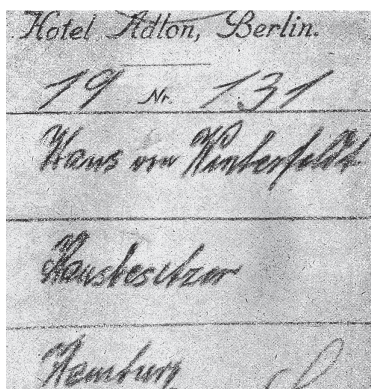 Hotel Adlon, Berlin.
19 Nr. 131
Hans von Winterfeldt
Hausbesitzer
Hamburg